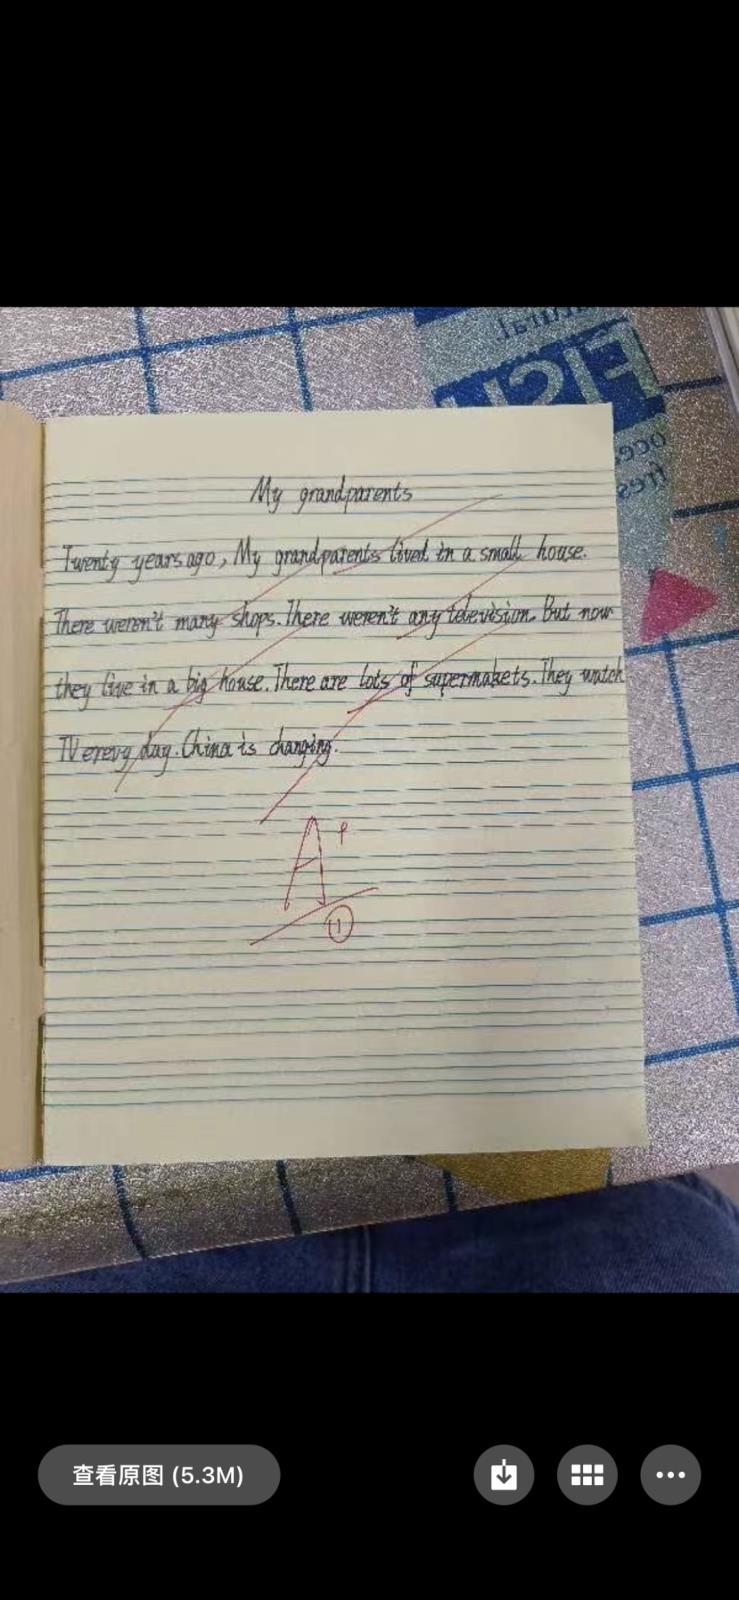 tural.
FISH
oce
fres
My grandparents
Twenty years ago, My grandparents lived in a small house.
There weren't many shops. There weren't any television. But now
they live in a big house. There are lots of supermakets. They watch
TV erevy day. China is changing.
A
查看原图 (5.3M)